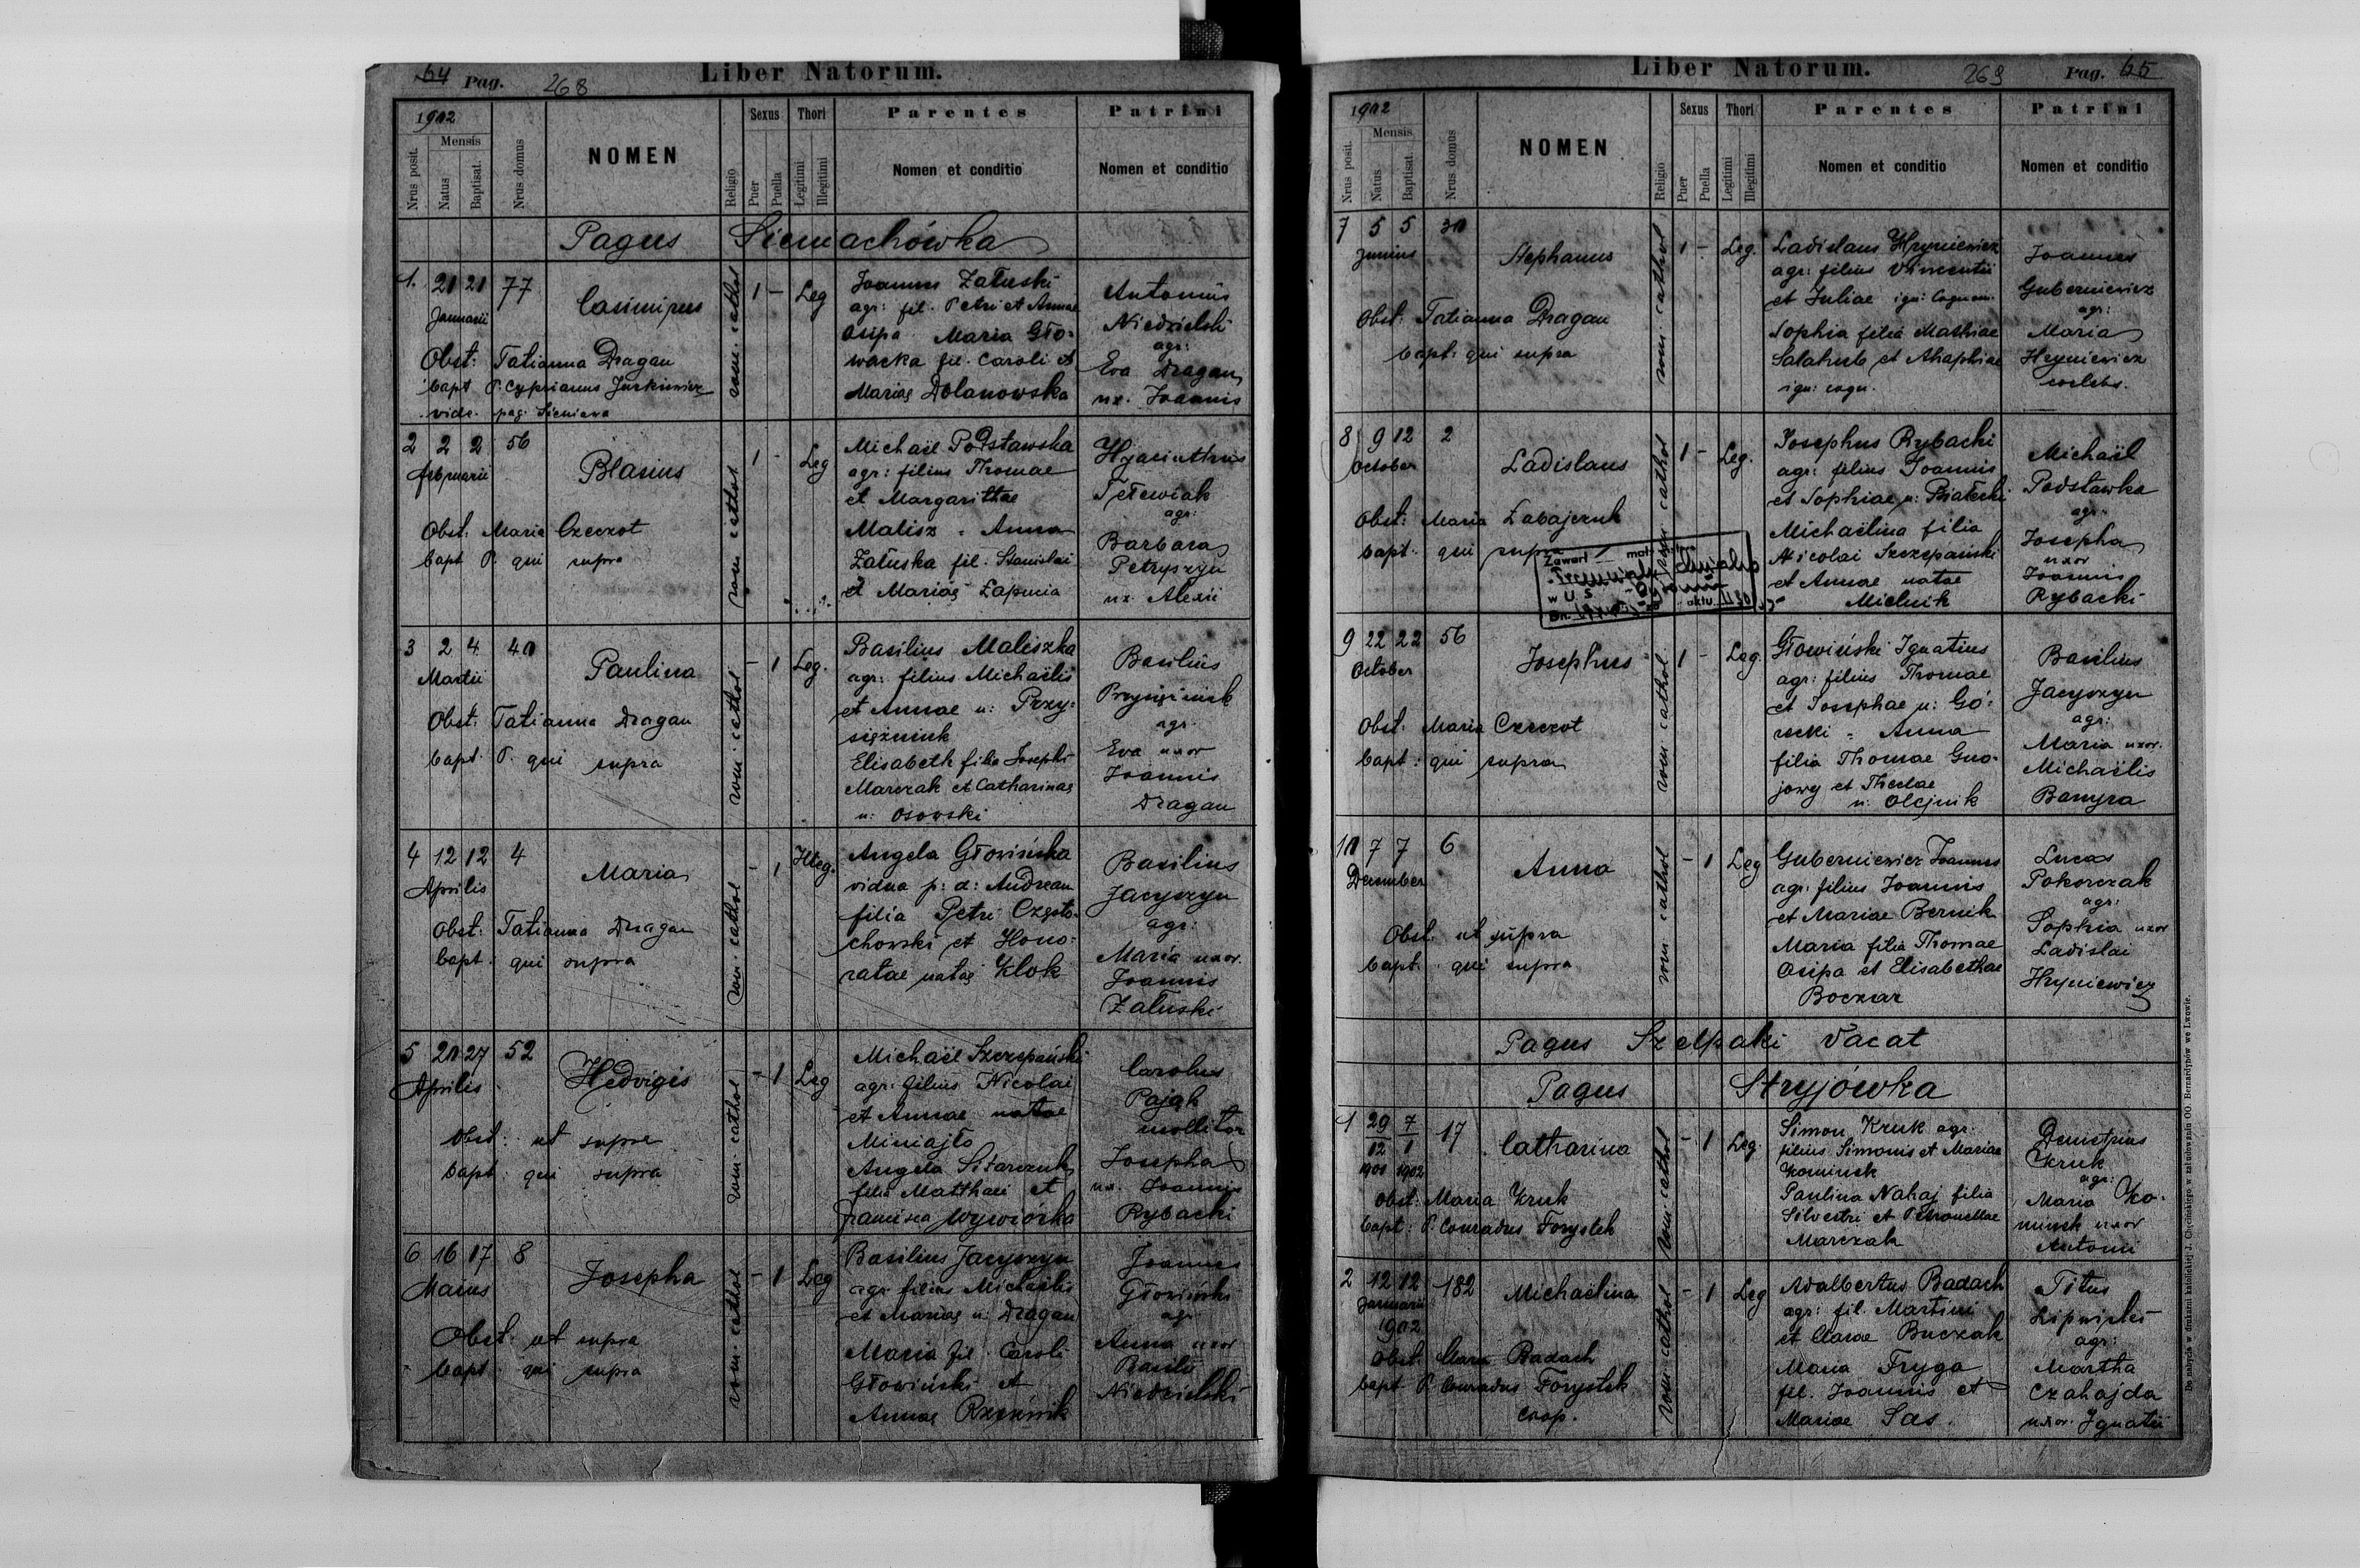 64 Pag. 268 Liber Natorum.
1902
Mensis
Nrus posit.
Natus
Baptisat.
Nrus domus
NOMEN
Religio
Sexus
Puer
Puella
Thori
Legitimi
Illegitimi
Parentes
Nomen et conditio
Patrini
Nomen et conditio
Pagus Siemachówka
1. 21 21 77
Januarii
Casimirus
rom. cathol
1 - Leg
Obst: Tatianna Dragan
bapt P. Cyprianus Jurkiewicz
vide. pag. Sieniava
Joannes Załuski
agr: fil. Petri et Annae
Osipa Maria Gło-
wacka fil. Caroli et
Mariae Dolanowska
Antonius
Niedzielski
agr:
Eva Dragan
ux. Joannis
2 2 2 56
Februarii
Blasius
rom cathol
1 - Leg
Obst. Maria Czeczot
bapt P. qui supra
Michaël Podstawska
agr: filius Thomae
et Margarittae
Malisz - Anna
Załuska fil. Stanislai
et Mariae Łapunia
Hyacinthus
Tetewiak
agr:
Barbara
Petryszyn
ux. Alexii
3 2 4 40
Martii
Paulina
rom. cathol
- 1 Leg.
Obst: Tatianna Dragan
bapt. P. qui supra
Basilius Maliszka
agr: filius Michaëlis
et Annae n: Przy-
siężniuk
Elisabeth filia Josephi
Marczak et Catharinae
n: Osowski
Basilius
Przysiężniuk
agr.
Eva uxor
Joannis
Dragan
4 12 12 4
Aprilis
Maria
rom. cathol
- 1 Illeg.
Obst: Tatianna Dragan
bapt. qui supra
Angela Głowińska
vidua p: d: Andream
filia Petri Często-
chowski et Hono-
ratae natae Klok
Basilius
Jacyszyn
agr:
Maria uxor
Joannis
Załuski
5 20 27 52
Aprilis
Hedvigis
rom. cathol
- 1 Leg
Obst: ut supra
bapt: qui supra
Michaël Szczepański
agr: filius Nicolai
et Annae natae
Miniajło
Angela Sitarczuk
filia Matthaei et
Francisca Wywiórka
Carolus
Pająk
mollitor
Josepha
ux. Joannis
Rybacki
6 16 17 8
Maius
Josepha
rom. cathol
- 1 Leg
Obst. ut supra
bapt. qui supra
Basilius Jacyszyn
agr. filius Michaëlis
et Mariae n: Dragan
Maria fil. Caroli
Głowiński et
Annae Rzeźnik
Joannes
Głowiński
agr
Anna uxor
Basilii
Niedzielski
Liber Natorum. 269 Pag. 65
1902
Mensis
Nrus posit.
Natus
Baptisat.
Nrus domus
NOMEN
Religio
Sexus
Puer
Puella
Thori
Legitimi
Illegitimi
Parentes
Nomen et conditio
Patrini
Nomen et conditio
7 5 5 30
Junius
Stephanus
rom. cathol
1 - Leg.
Obst: Tatianna Dragan
bapt: qui supra
Ladislaus Hryniewicz
agr: filius Vincentii
et Juliae ign: cognom.
Sophia filia Mathiae
Salahub et Ahaphiae
ign: cogn.
Joannes
Guberniewicz
agr:
Maria
Hryniewicz
coelebs.
8 9 12 2
October
Ladislaus
rom cathol
1 - Leg.
Obst: Maria Łabajczuk
bapt. qui supra
Zawarł
w U. S.
aktu
Josephus Rybacki
agr: filius Joannis
et Sophiae n: Białecki
Michaëlina filia
Nicolai Szczepański
et Annae natae
Mielnik
Michaël
Podstawka
agr.
Josepha
uxor
Joannis
Rybacki
9 22 22 56
October
Josephus
rom cathol.
1 - Leg.
Obst. Maria Czeczot
bapt: qui supra
Głowiński Ignatius
agr: filius Thomae
et Josephae n: Gó-
recki - Anna
filia Thomae Gno-
jowy et Theclae
n: Olejnik
Basilius
Jacyszyn
agr:
Maria uxor.
Michaëlis
Banyra
10 7 7 6
December
Anna
rom. cathol
- 1 Leg
Obst. ut supra
bapt. qui supra
Guberniewicz Joannes
agr: filius Joannis
et Mariae Bernik
Maria filia Thomae
Osipa et Elisabethae
Boczar
Lucas
Pokorczak
agr:
Sophia uxor
Ladislai
Hryniewicz
Pagus Szelpaki Vacat
Pagus Stryjówka
1 29 7 17
12 1
1901 1902
Catharina
rom. cathol
- 1 Leg.
Obst: Maria Kruk
bapt: P. Conradus Forystek
Simon Kruk agr:
filius Simonis et Mariae
Kominek
Paulina Nahaj filia
Silvestri et Petronellae
Marczak
Demetrius
Kruk
agr:
Maria Ko-
minek uxor
Antonii
2 12 12 182
Januarii
1902
Michaëlina
rom. cathol
- 1 Leg
Obst. Maria Badach
bapt P. Conradus Forystek
coop.
Adalbertus Badach
agr: fil. Martini
et Clarae Buczak
Maria Fryga
fil. Joannis et
Mariae Sas.
Titus
Lipnicki
agr:
Martha
Czahajda
uxor. Ignatii
Do nabycia w drukarni katolickiej J. Chęcińskiego w zabudowaniu OO. Bernardynów we Lwowie.